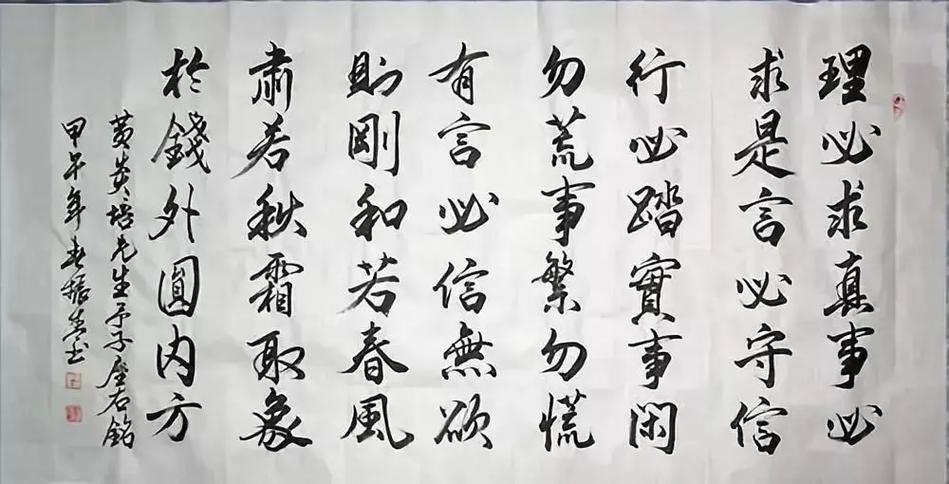 理必求真事必
求是言必守信
行必踏實事閑
勿荒事繁勿慌
有言必信無欲
則剛和若春風
肅若秋霜取象
於錢外圓内方
黄炎培先生予子座右銘
甲午年春振生书